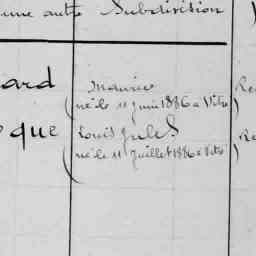 une autre Subdivision
ard Maurice
(né le 11 juin 1886 a Vitré) Re
que Louis Jules
(né le 11 Juillet 1886 a Vitré) Re